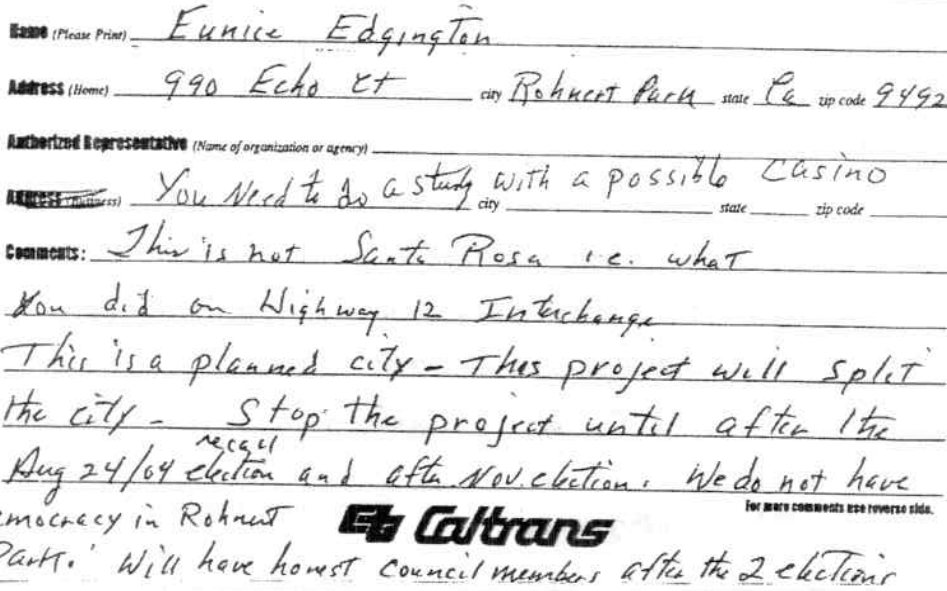 Name (Please Print) Eunice Edgington
Address (Home) 990 Echo Ct city Rohnert Park state Ca zip code 9492
Authorized Representative (Name of organization or agency)
Address (Business) You Need to do a study with a possible Casino city state zip code
Comments: This is not Santa Rosa i.e. what
you did on Highway 12 Interchange
This is a planned city - This project will split
the city - Stop the project until after the
recall
Aug 24/04 election and after Nov. election. We do not have
For more comments use reverse side.
emocracy in Rohnert Caltrans
Park. Will have honest council members after the 2 elections